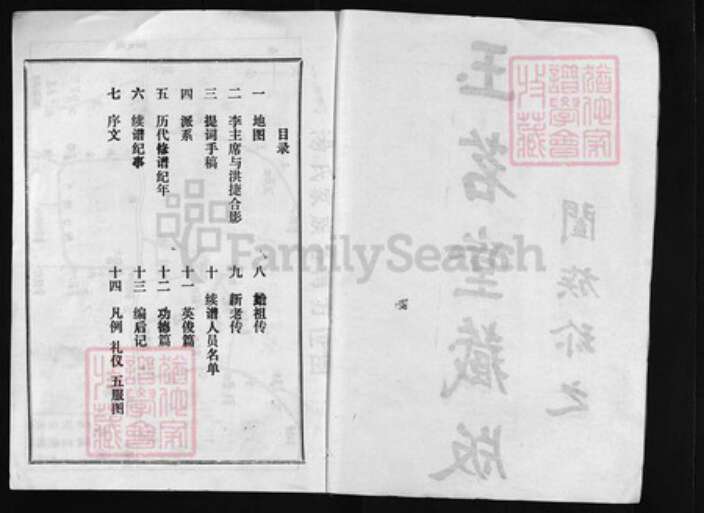 目录
一 地图
二 李主席与洪捷合影
三 提词手稿
四 派系
五 历代修谱纪年
六 续谱纪事
七 序文
八 始祖传
九 新老传
十 续谱人员名单
十一 英俊篇
十二 功德篇
十三 编后记
十四 凡例 礼仪 五服图
FamilySearch
闔族珍之
藏版